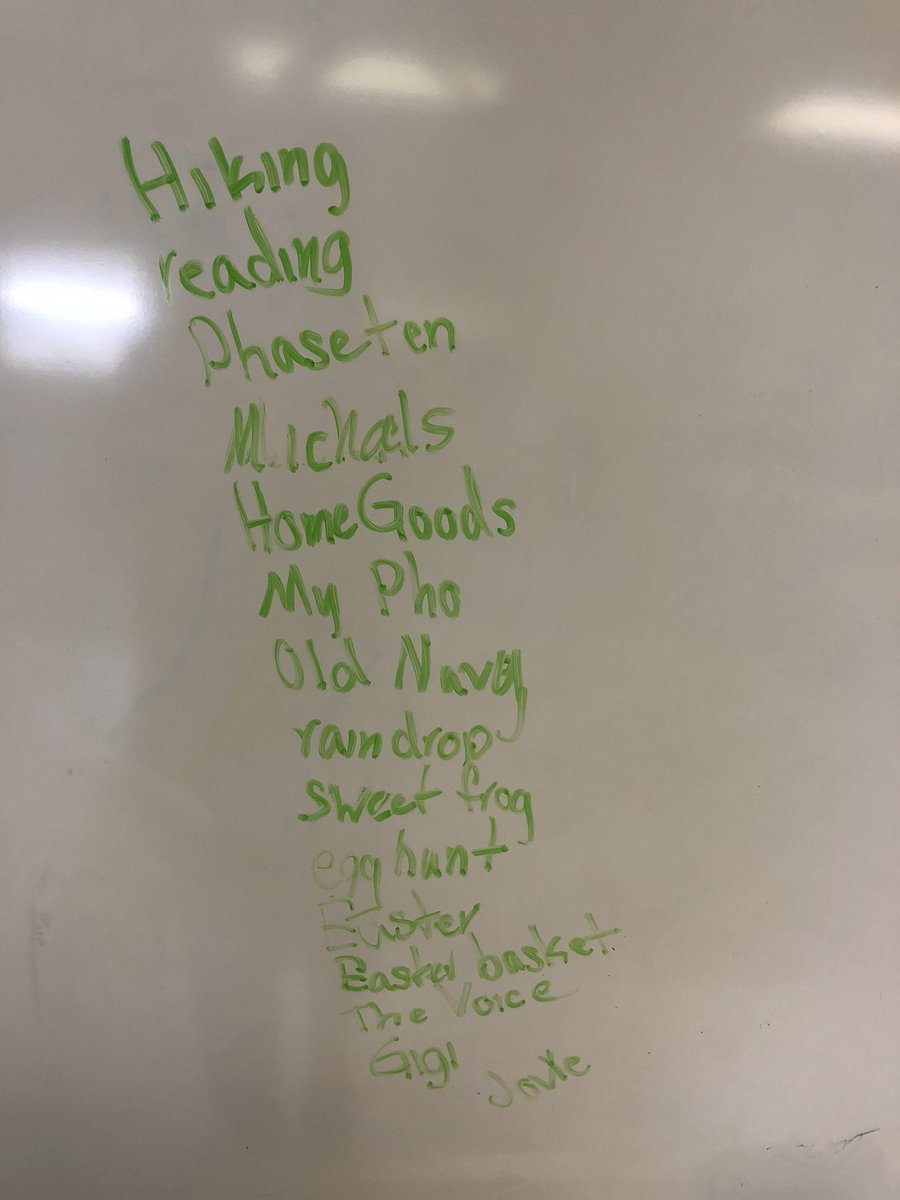 Hiking
reading
Phase ten
Michaels
HomeGoods
My Pho
Old Navy
raindrop
sweet frog
egg hunt
Easter
Easter basket
The Voice
Gigi